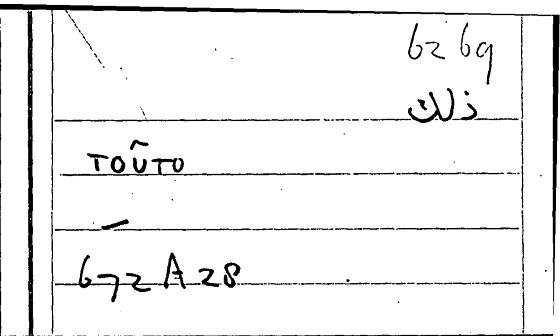 62 69
ذلك
τοῦτο
–
672 A 28